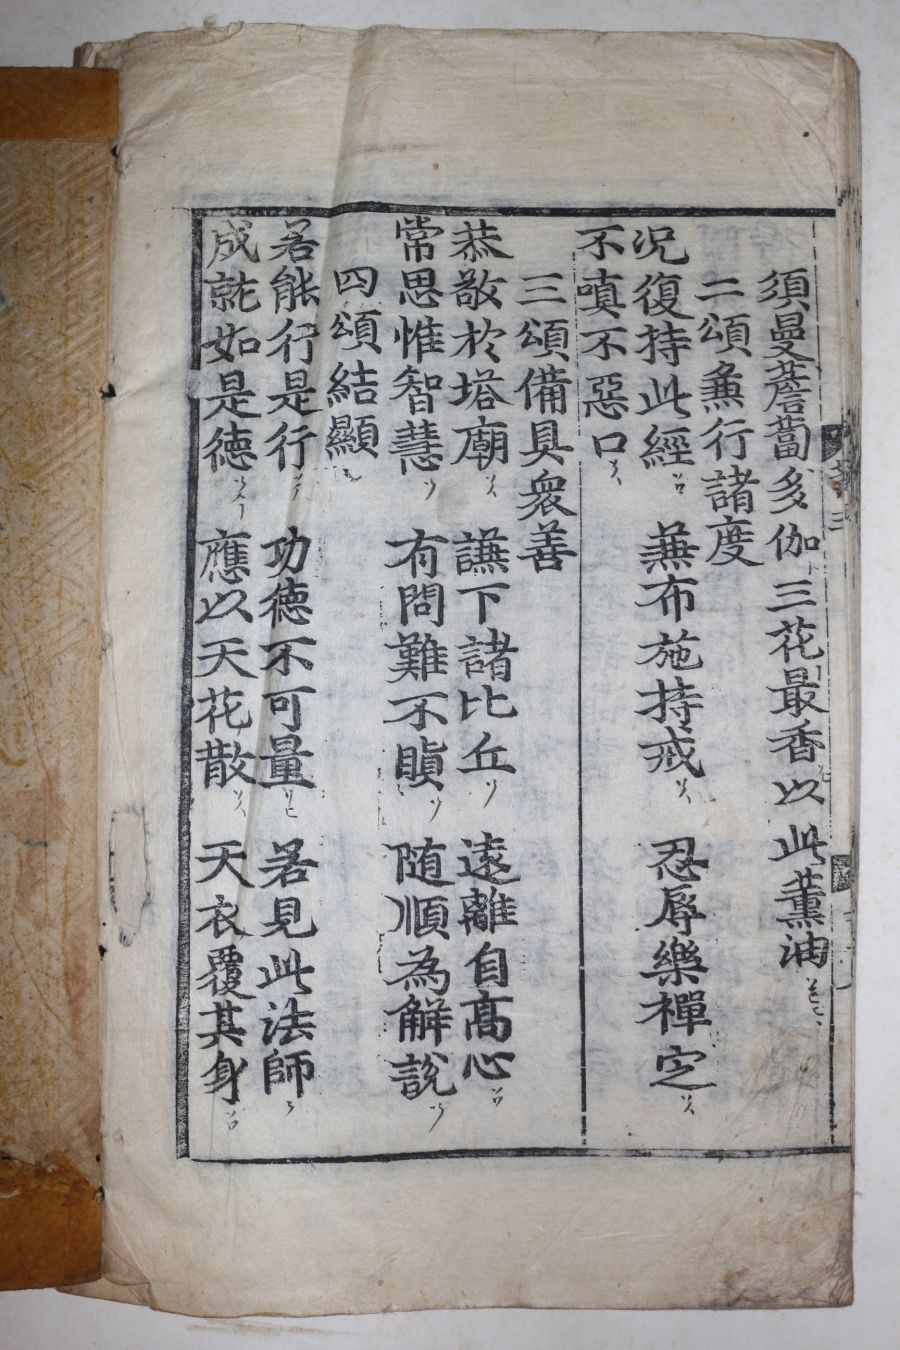 須曼薝蔔多伽三花最香以此薰油
二頌兼行諸度
况復持此經 兼布施持戒 忍辱樂禪定
不嗔不惡口
三頌備具衆善
恭敬於塔廟 謙下諸比丘 遠離自髙心
常思惟智慧 有問難不瞋 随順為解說
四頌結顯
若能行是行 功德不可量 若見此法師
成就如是德 應以天花散 天衣覆其身